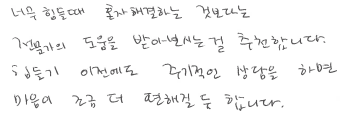 너무 힘들때 혼자해결하는 것보다는
전문가의 도움을 받아보시는걸 추천합니다.
힘들기 이전에도 주기적인 상담을 하면
마음이 조금 더 편해질 듯 합니다.